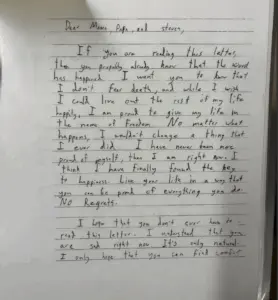 Dear Mama, Papa, and
If you are reading this letter,
then you propably already know that the worst
has happened. I want you to know that
I don't fear death, and while I wish
I could live out the rest of my life
happily, I am proud to give my life in
the name of freedom. No matter what
happens, I wouldn't change a thing that
I ever did. I have never been more
proud of myself, than I am right now. I
think I have finally found the key
to happiness. Live your life in a way that
you can be proud of everything you do.
No Regrets.
I hope that you don't ever have to
read this letter. I understand that you
are sad right now. It's only natural.
I only hope that you can find comfort